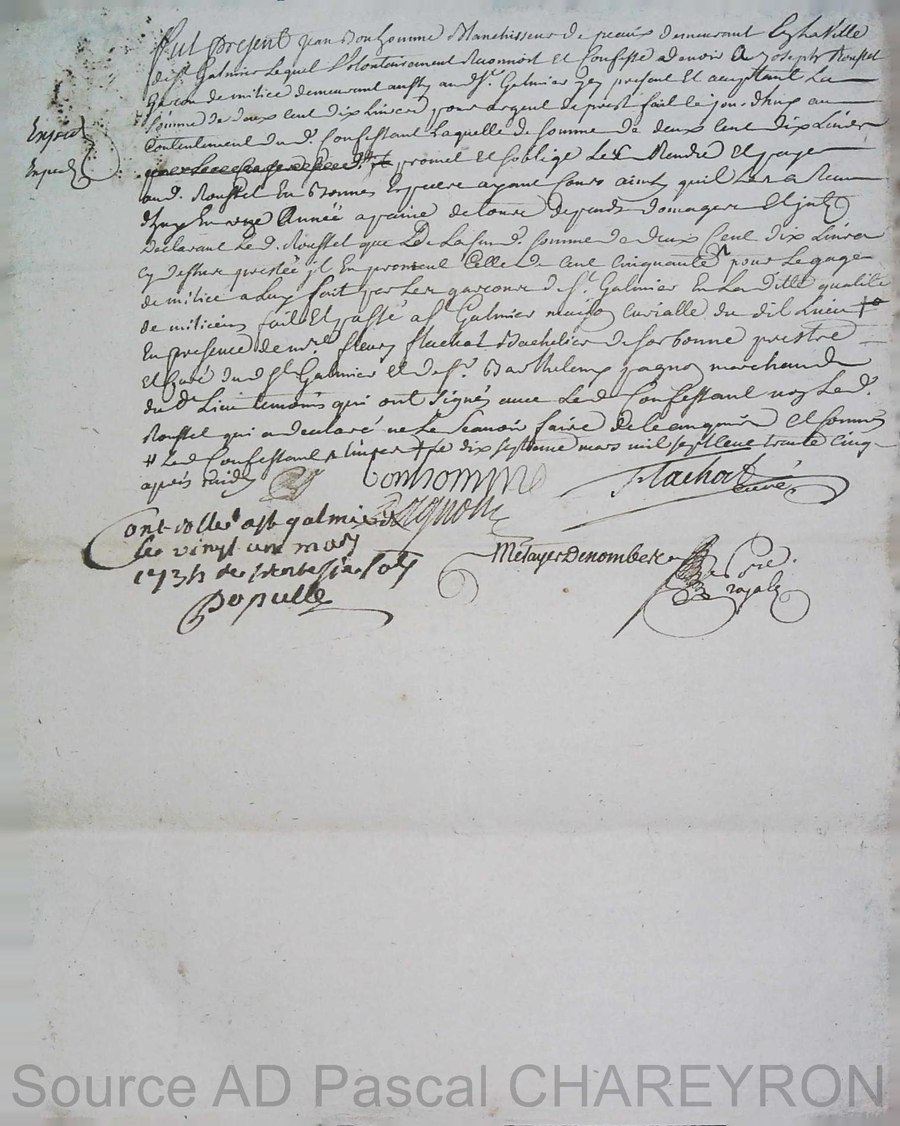 Fut present Jean Bonhomme Blanchisseur de peaux demeurant la ville
de St Galmier Lequel Volontairement Reconnoit et Confesse devoir a Joseph Rousset
Garcon de milice demeurant aud St Galmier Icy present Et acceptant La
Somme de deux cent dix Livres pour argent de prest fait Le jourd'huy au
Contentement du d. Confessant Laquelle de somme de deux Cent dix Livres
promet Et soblige Rendre Et payer
aud. Rousset En Bonnes Especes ayant Cours
d'huy En Année a peine de tous depends domages Et
Declarant Le d. Rousset que somme de deux Cent dix Livres
cy dessus prestée Il En provient Celle de Cent cinquante pour Le gage
de milice a Luy fait par Les garcons de St Galmier En La ditte qualité
de milicien fait Et passé a St Galmier maison Curialle du dit Lieu
En presence de mre fleury flachat Bachelier de sorbonne prestre
Et Curé du d St Galmier Et de Sr Barthelemy pagnon marchand
du d. Lieu temoins qui ont signés avec Led Confessant non Led.
Rousset qui a declaré ne Le Scavoir faire de Ce enquis et sommé
Led Confessant Le dix sept mars mil sept Cent trente Cinq
après midy
Bonhomme
Flachat
curé
pagnon
Controllé a St galmier
Le vingt un mars
1735
Populle
Metayer Denombete
royal
Source AD Pascal CHAREYRON